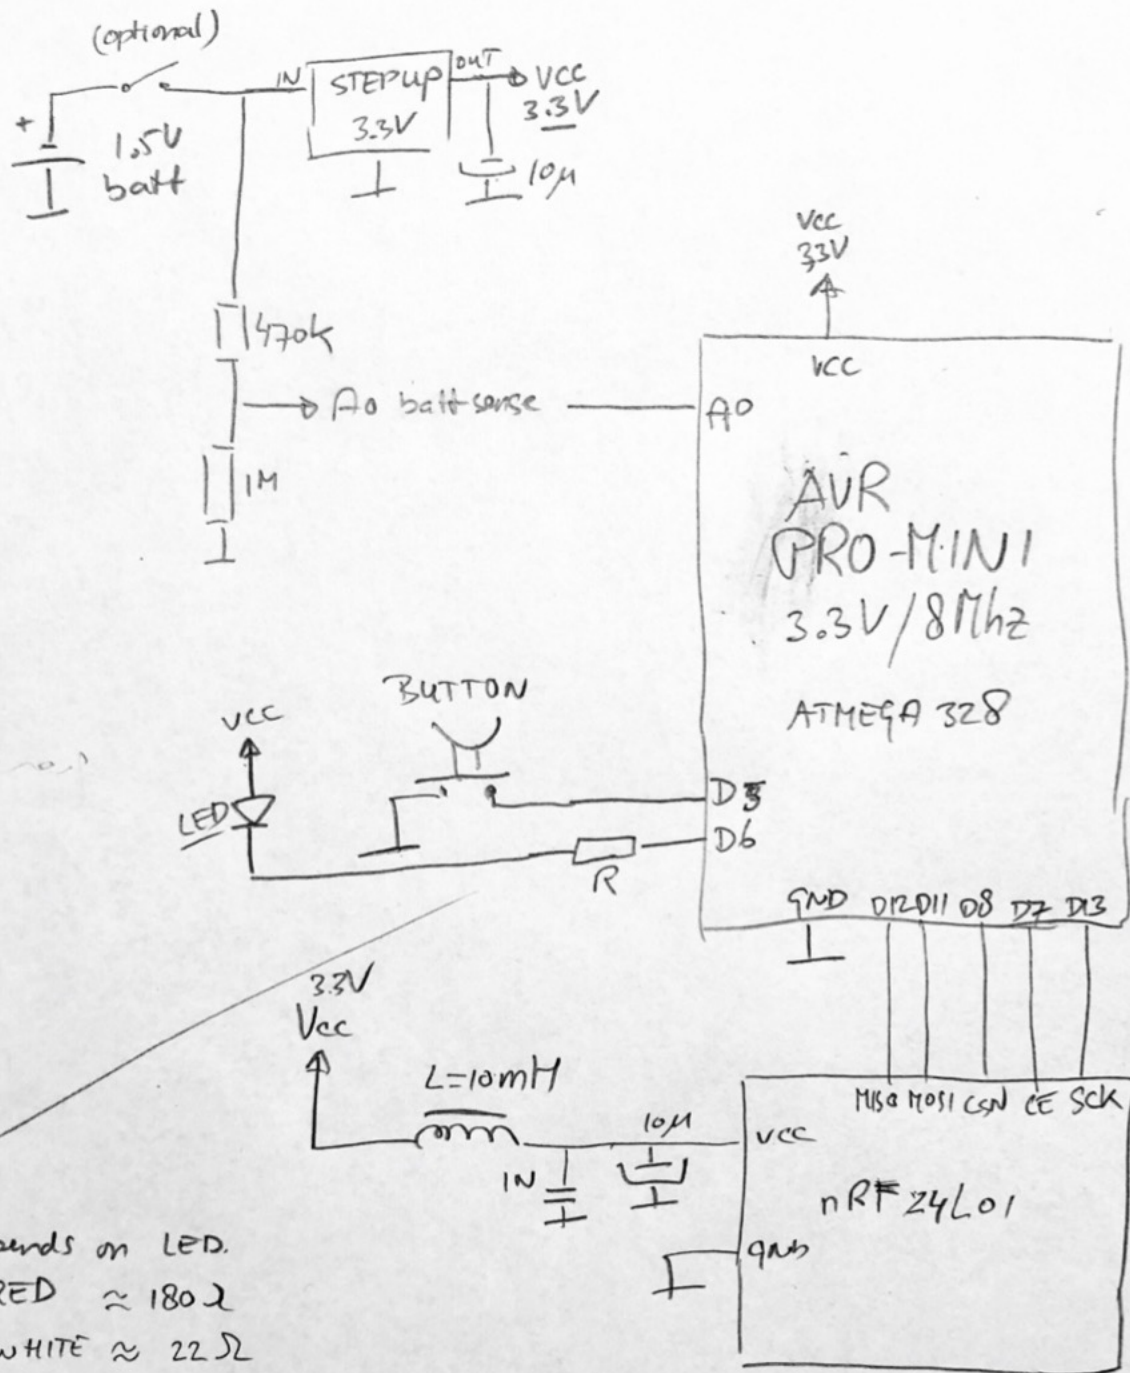 (optional)
+
1,5V
batt
IN
STEPUP
3.3V
OUT
VCC
3.3V
10µ
470k
A0 batt sense
1M
VCC
3,3V
VCC
A0
AVR
PRO-MINI
3.3V/8Mhz
ATMEGA 328
BUTTON
VCC
LED
D3
D6
R
GND D12 D11 D8 D7 D13
3.3V
Vcc
L=10mH
1N
10µ
MISO MOSI CSN CE SCK
VCC
nRF24L01
GND
ends on LED.
RED ≈ 180Ω
WHITE ≈ 22Ω